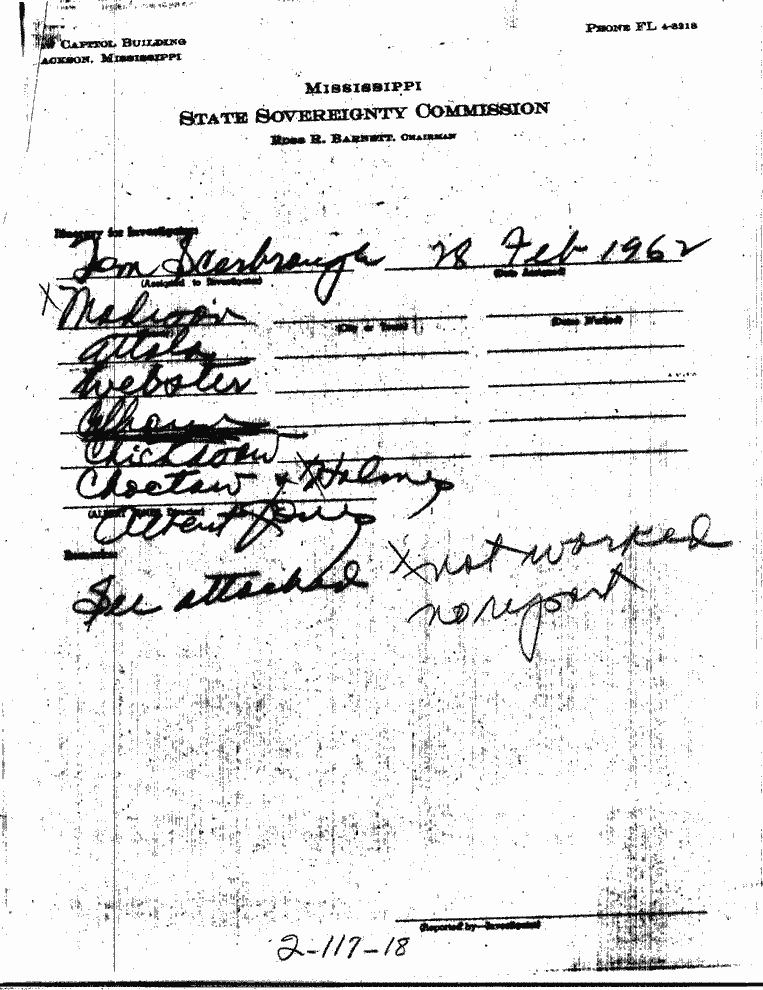 Capitol Building
Jackson, Mississippi
Phone FL 4-3218
Mississippi
State Sovereignty Commission
Ross R. Barnett, Chairman
Itinerary for Investigation
Tom Scarbrough 28 Feb 1962
(Assigned to Investigator) (Date Assigned)
x Madison
(City or Town) (Dates Worked)
Attala
Webster
Calhoun
Chickasaw
Choctaw x Holmes
Albert Jones
Remarks
See attached x not worked
no report
(Reported by—Investigator)
2-117-18